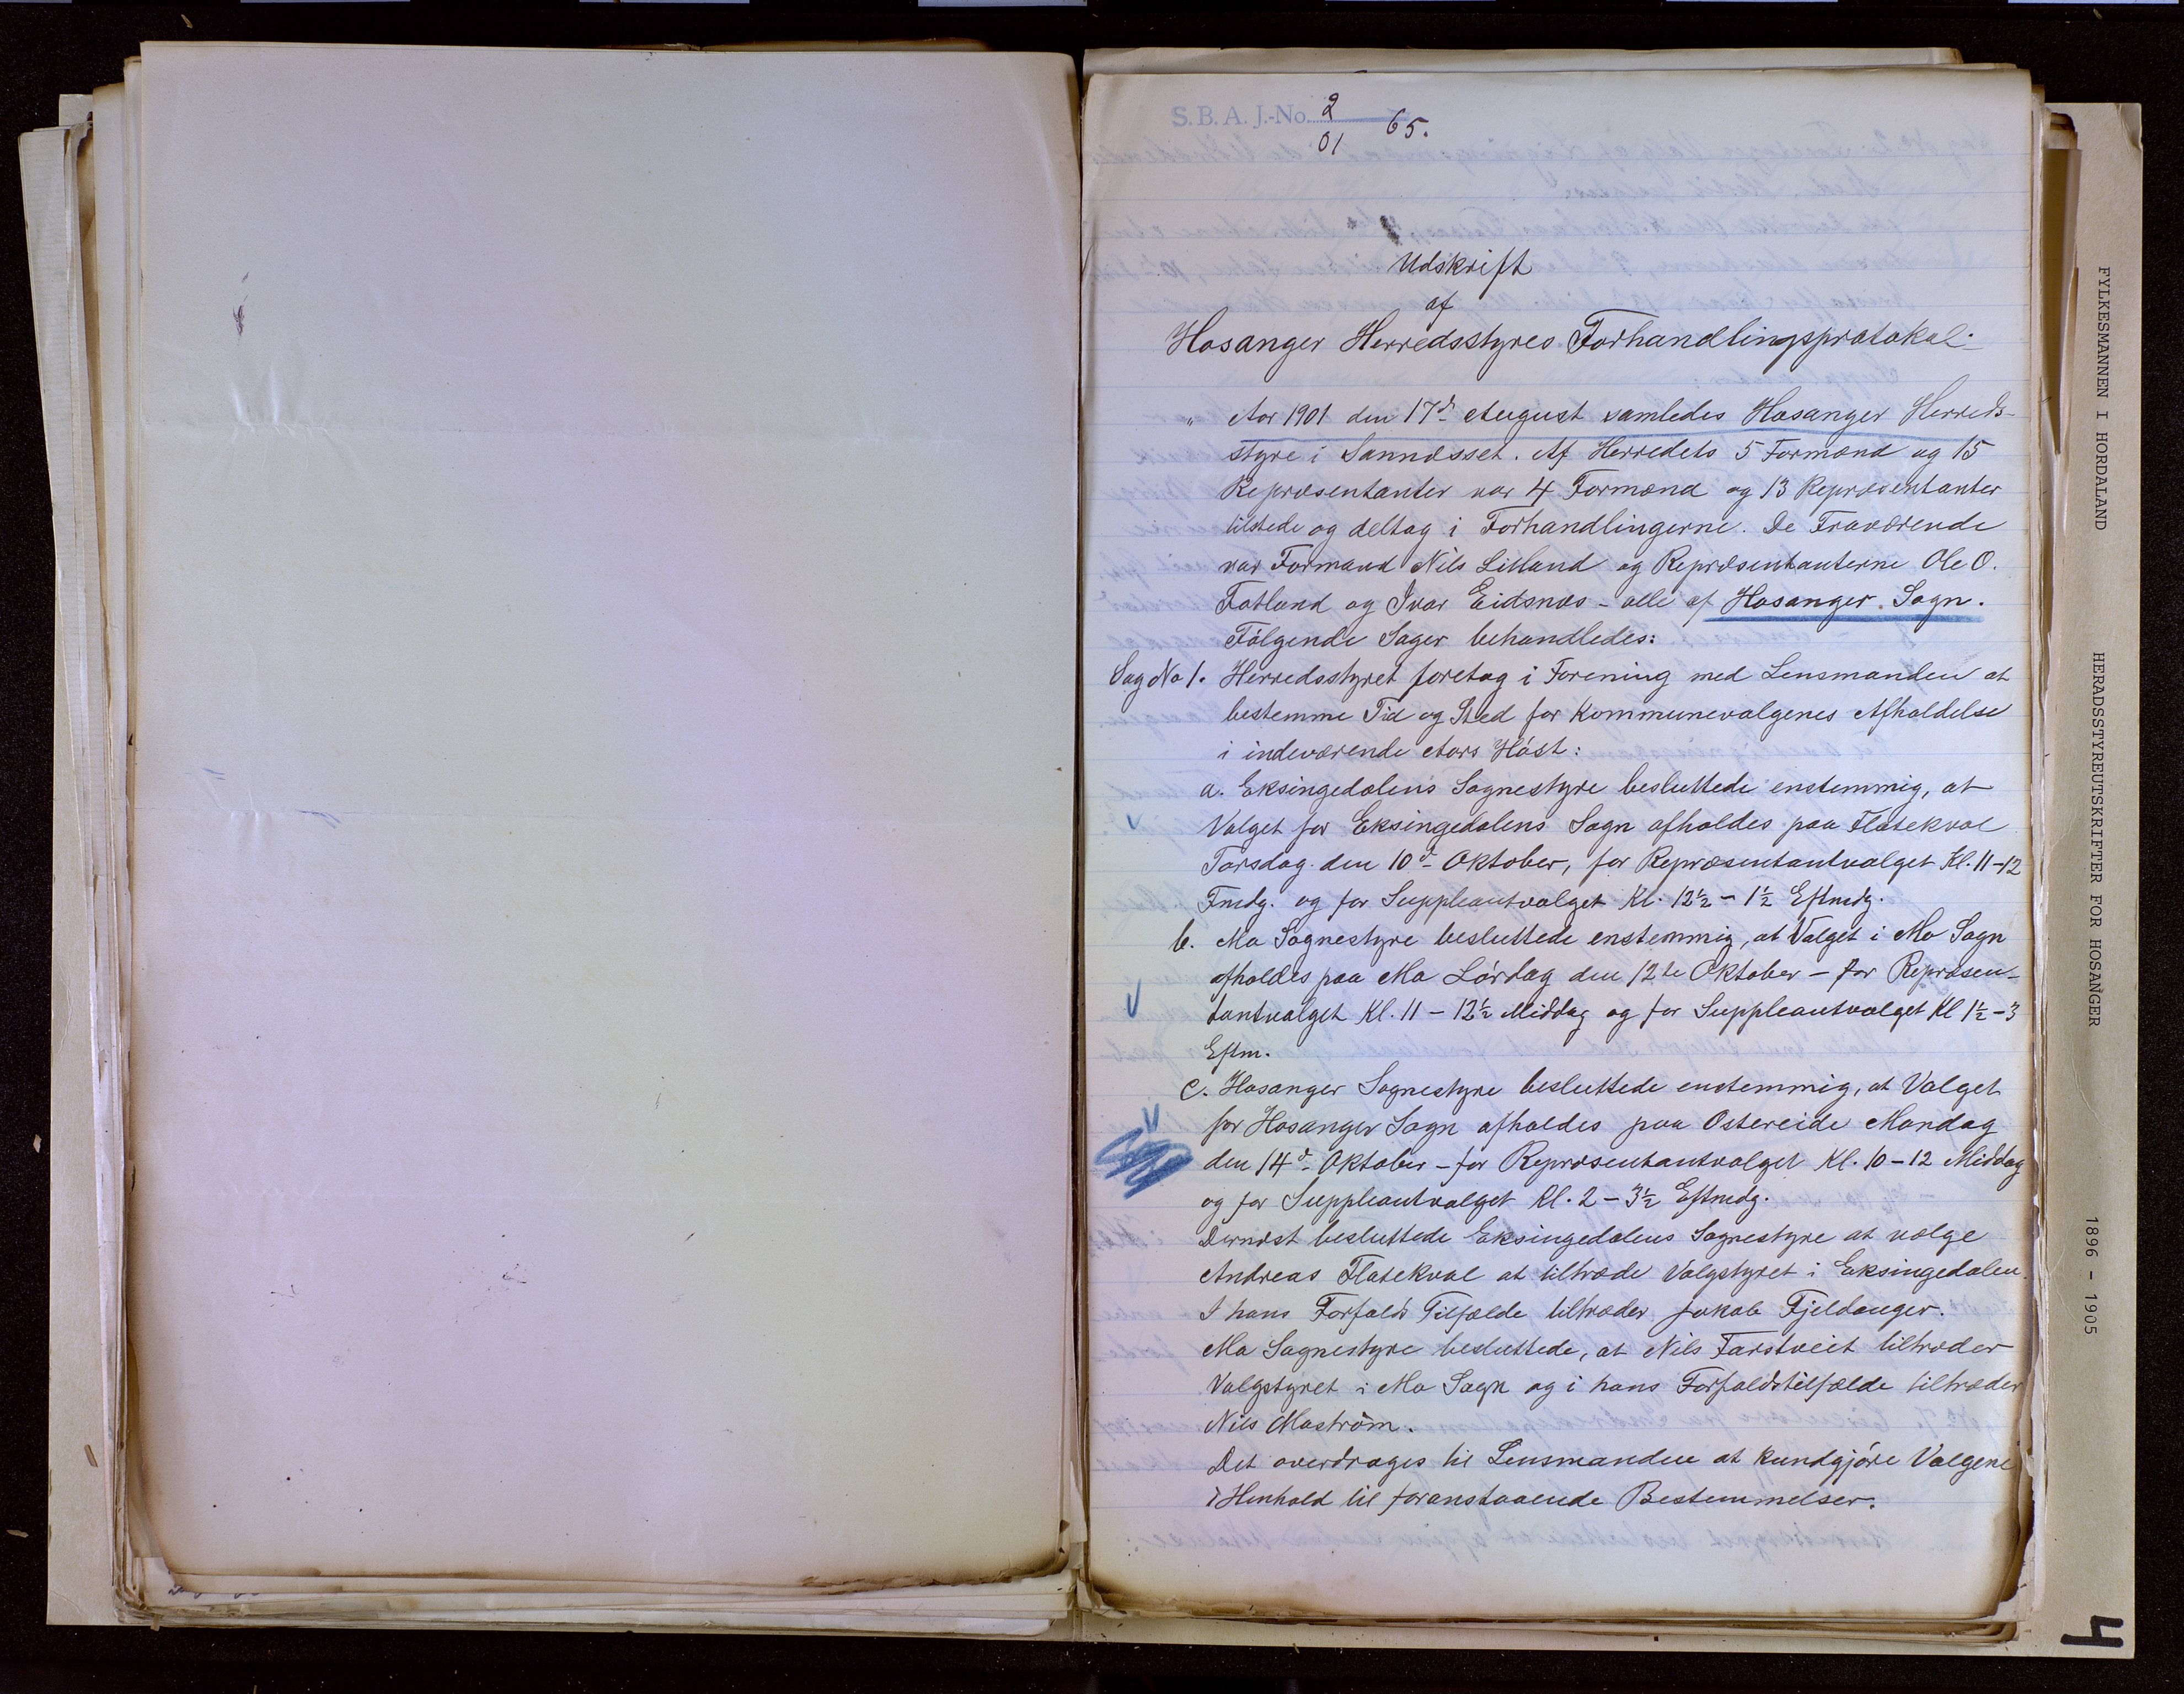 S. B. A. J.-No. 2 65.
01
Udskrift
af
Hosanger Herredsstyres Forhandlingsprotokol.
" Aar 1901 den 17d- August samledes Hosanger Herreds-
styre i Sannesset. Af Herredets 5 Formænd og 15
Repræsentanter var 4 Formænd og 13 Repræsentanter
tilstede og deltog i Forhandlingerne. De Fraværende
var Formand Nils Litland og Repræsentanterne Ole O.
Fotland og Ivar Eidsnes - alle af Hosanger Sogn.
Følgende Sager behandledes:
Sag No 1. Herredsstyret foretog i Forening med Lensmanden at
bestemme Tid og Sted for Kommunevalgenes Afholdelse
i indeværende Aars Høst:
a. Eksingedalens Sognestyre besluttede enstemmig, at
Valget for Eksingedalens Sogn afholdes paa Flatekval
Torsdag den 10d- Oktober, for Repræsentantvalget Kl. 11-12
Fmdg. og for Suppleantvalget Kl. 12½ - 1½ Eftmdg.
b. Mo Sognestyre besluttede enstemmig, at Valget i Mo Sogn
afholdes paa Mo Lørdag den 12te Oktober - for Repræsen-
tantvalget Kl. 11 - 12½ Middag og for Suppleantvalget Kl 1½ - 3
Eftm.
c. Hosanger Sognestyre besluttede enstemmig, at Valget
for Hosanger Sogn afholdes paa Ostereide Mandag
den 14d- Oktober - for Repræsentantvalget Kl. 10 - 12 Middag
og for Suppleantvalget Kl. 2 - 3½ Eftmdg.
Dernæst besluttede Eksingedalens Sognestyre at vælge
Andreas Flatekval at tiltræde Valgstyret i Eksingedalen.
I hans Forfalds Tilfælde tiltræder Jakob Fjeldanger.
Mo Sognestyre besluttede, at Nils Farstveit tiltræder
Valgstyret i Mo Sogn og i hans Forfaldstilfælde tiltræder
Nils Mostrøm.
Det overdrages til Lensmanden at kundgjøre Valgene
i Henhold til foranstaaende Bestemmelser.
FYLKESMANNEN I HORDALAND HERADSSTYREUTSKRIFTER FOR HOSANGER 1896 - 1905
4